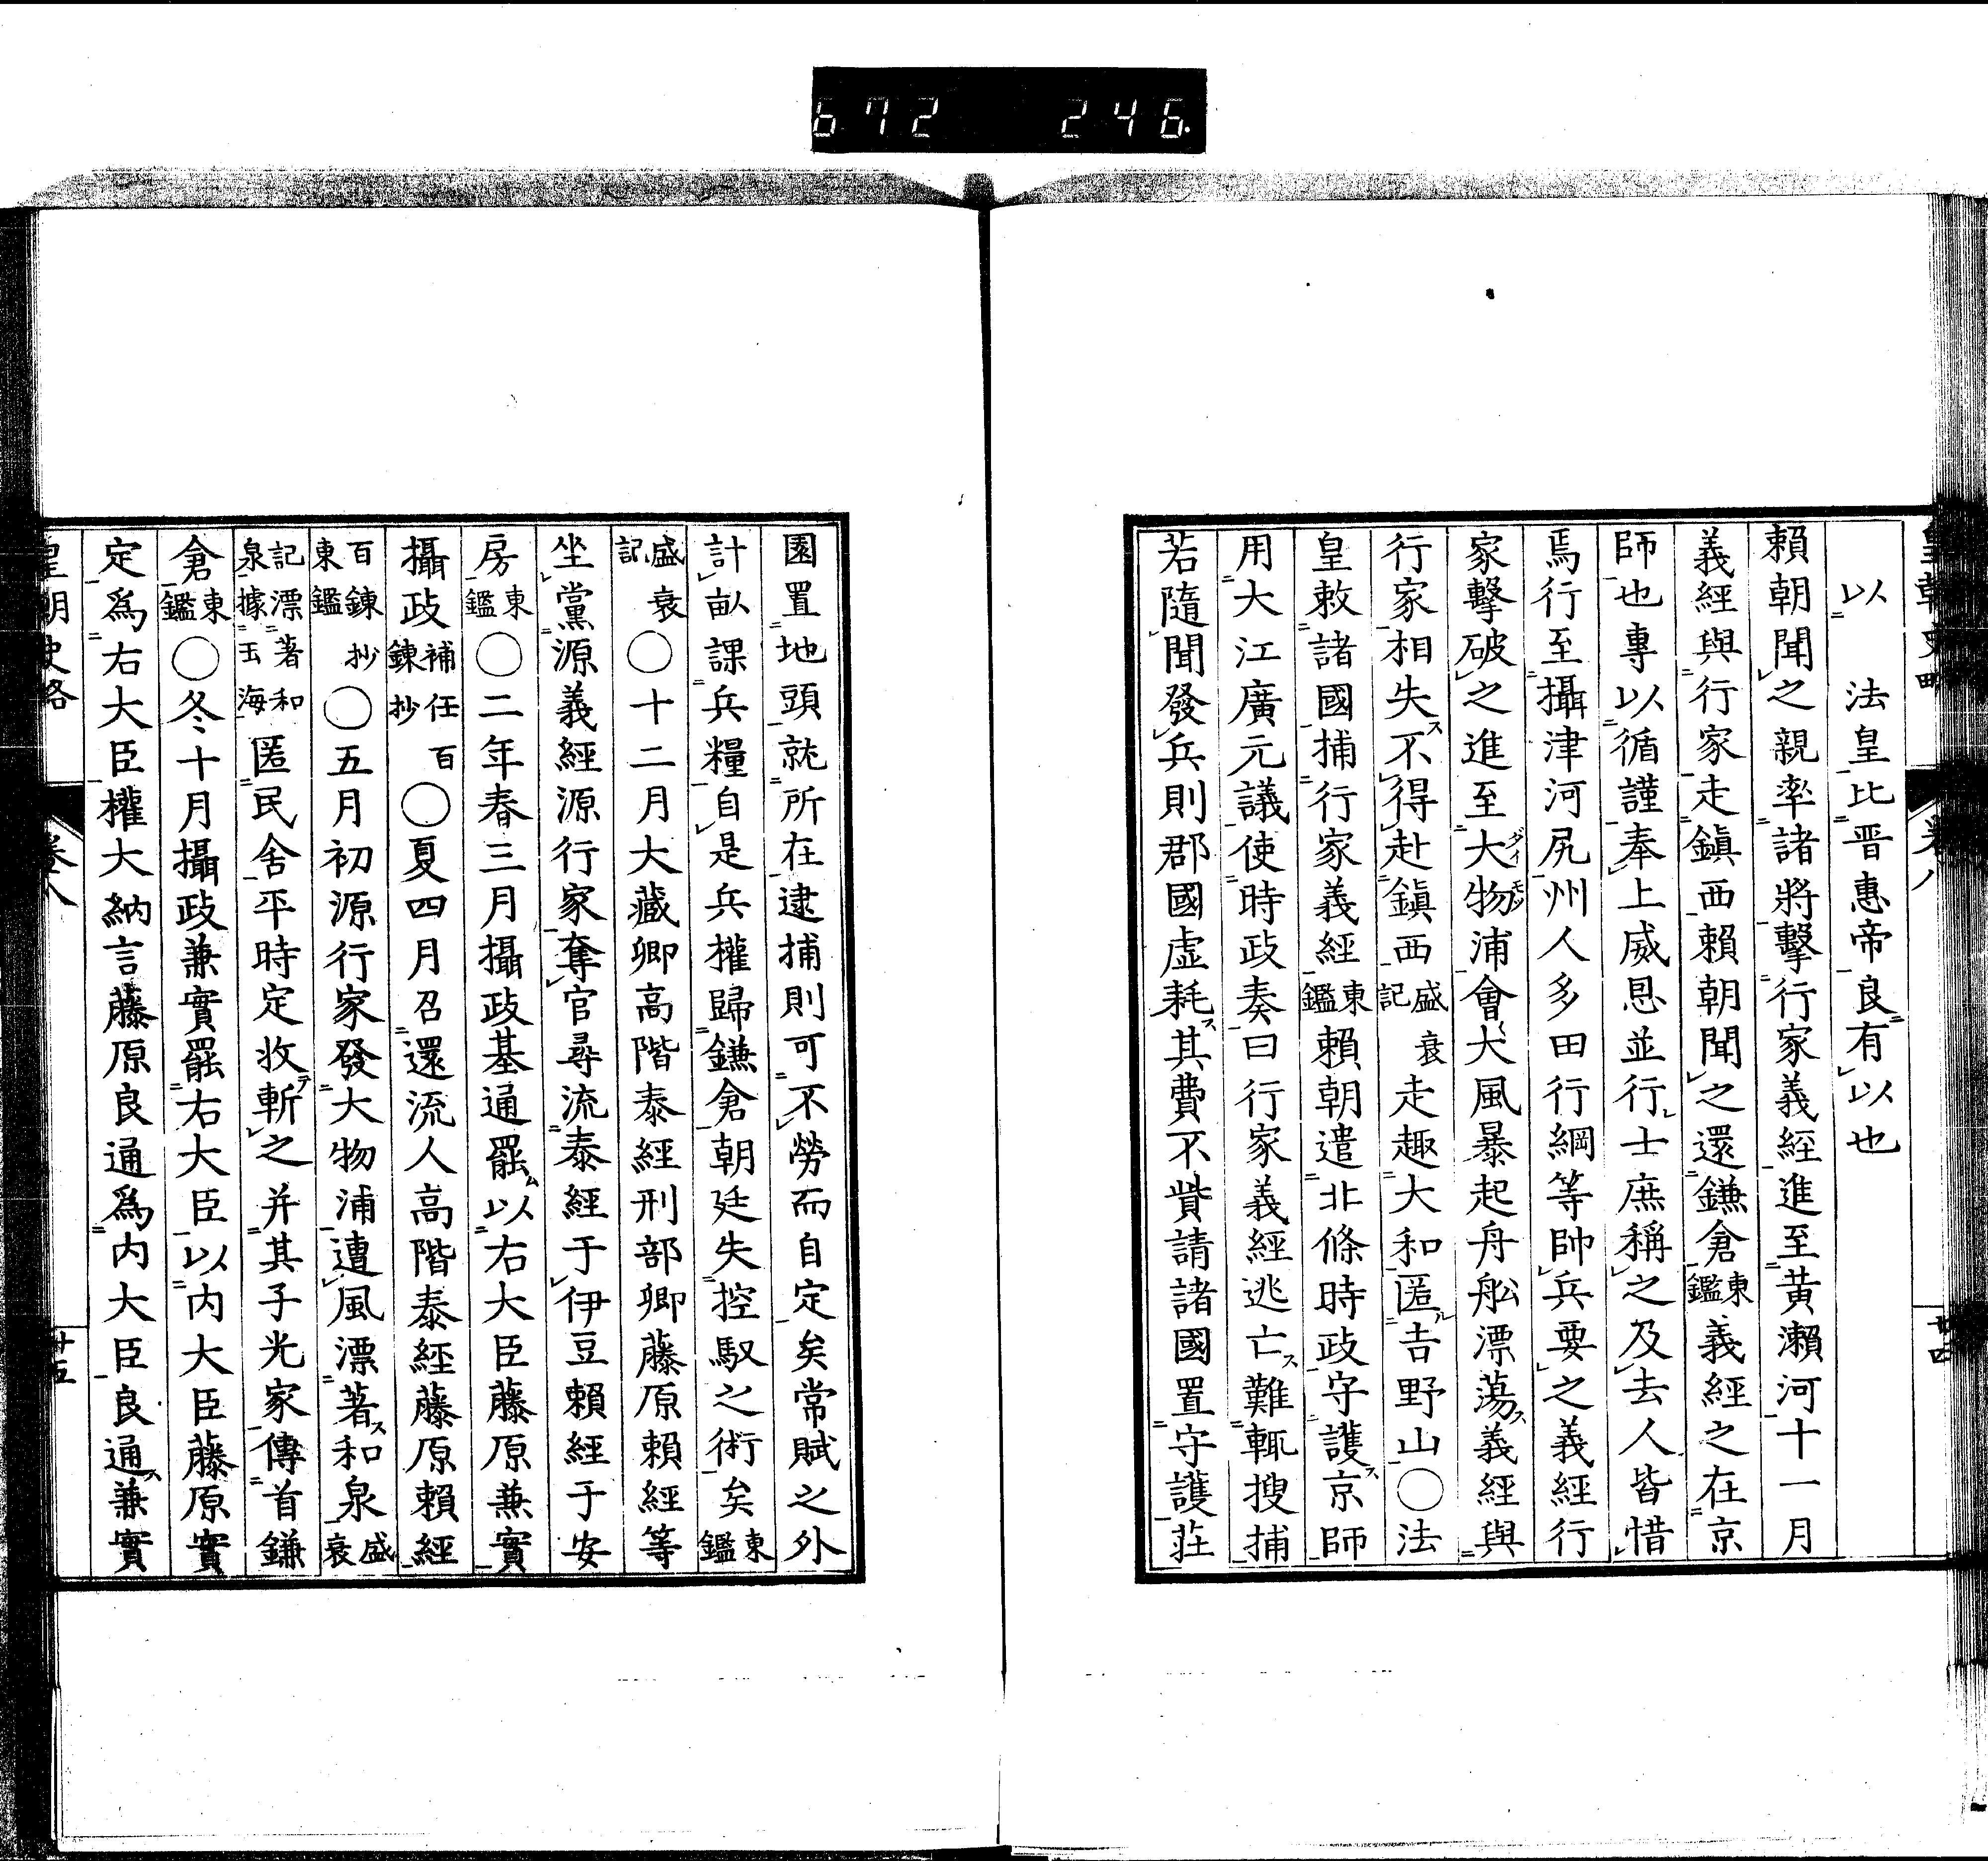 672 246
皇朝史略 卷八 廿四
以 法皇比晋惠帝良有以也
賴朝聞之親率諸將擊行家義經進至黃瀨河十一月
義經與行家走鎭西賴朝聞之還鎌倉東鑑義經之在京
師也專以循謹奉上威恩並行士庶稱之及去人皆惜
焉行至攝津河尻州人多田行綱等帥兵要之義經行
家擊破之進至大物浦會大風暴起舟舩漂蕩義經與
行家相失不得赴鎭西盛衰記走趣大和匿吉野山〇法
皇敕諸國捕行家義經東鑑賴朝遣北條時政守護京師
用大江廣元議使時政奏曰行家義經逃亡難輒搜捕
若隨聞發兵則郡國虛耗其費不貲請諸國置守護莊
園置地頭就所在逮捕則可不勞而自定矣常賦之外
計畝課兵糧自是兵權歸鎌倉朝廷失控馭之術矣東鑑
盛衰記〇十二月大藏卿高階泰經刑部卿藤原賴經等
坐黨源義經源行家奪官尋流泰經于伊豆賴經于安
房東鑑〇二年春三月攝政基通罷以右大臣藤原兼實
攝政補任百鍊抄〇夏四月召還流人高階泰經藤原賴經
百鍊抄東鑑〇五月初源行家發大物浦遭風漂著和泉盛衰
記漂著和泉據玉海匿民舍平時定收斬之并其子光家傳首鎌
倉東鑑〇冬十月攝政兼實罷右大臣以內大臣藤原實
定爲右大臣權大納言藤原良通爲內大臣良通兼實
皇朝史略 卷八 廿五